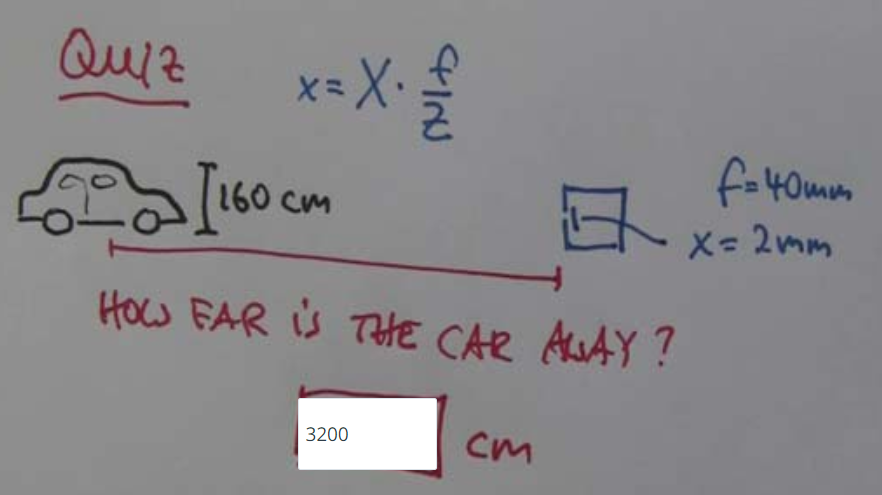 QUIZ
x = X · f/Z
160 cm
f = 40mm
x = 2mm
HOW FAR iS THE CAR AWAY?
3200 cm